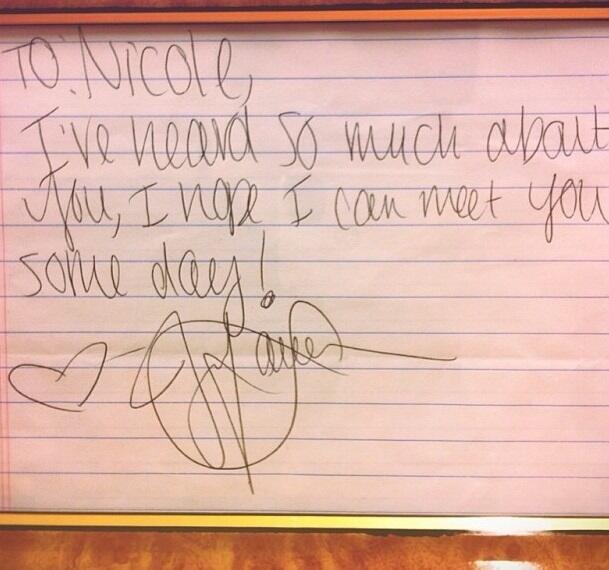 To: Nicole,
I've heard so much about
You, I hope I can meet you
some day!